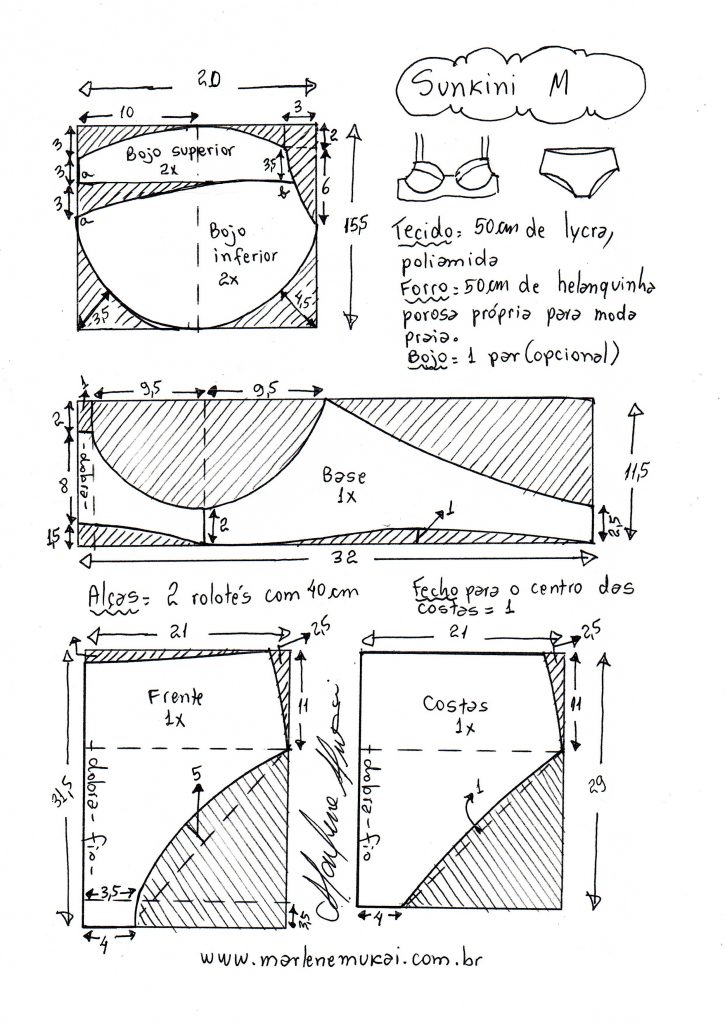 Sunkini M
20
10
3
3
3
3
2
3,5
6
15,5
a
b
a
Bojo superior
2x
Bojo
inferior
2x
3,5
4,5
Tecido = 50cm de lycra,
poliamida
Forro = 50cm de helanquinha
porosa própria para moda
praia.
Bojo = 1 par (opcional)
1
9,5
9,5
2
8
1,5
-dobra-
Base
1x
2
1
2,5
11,5
32
Alças = 2 rolotês com 40cm
Fecho para o centro das
costas = 1
21
2,5
1
11
Frente
1x
31,5
dobra-fio-
5
3,5
3,5
4
Marlene Mukai
21
2,5
11
Costas
1x
dobra-fio
1
29
4
www.marlenemukai.com.br